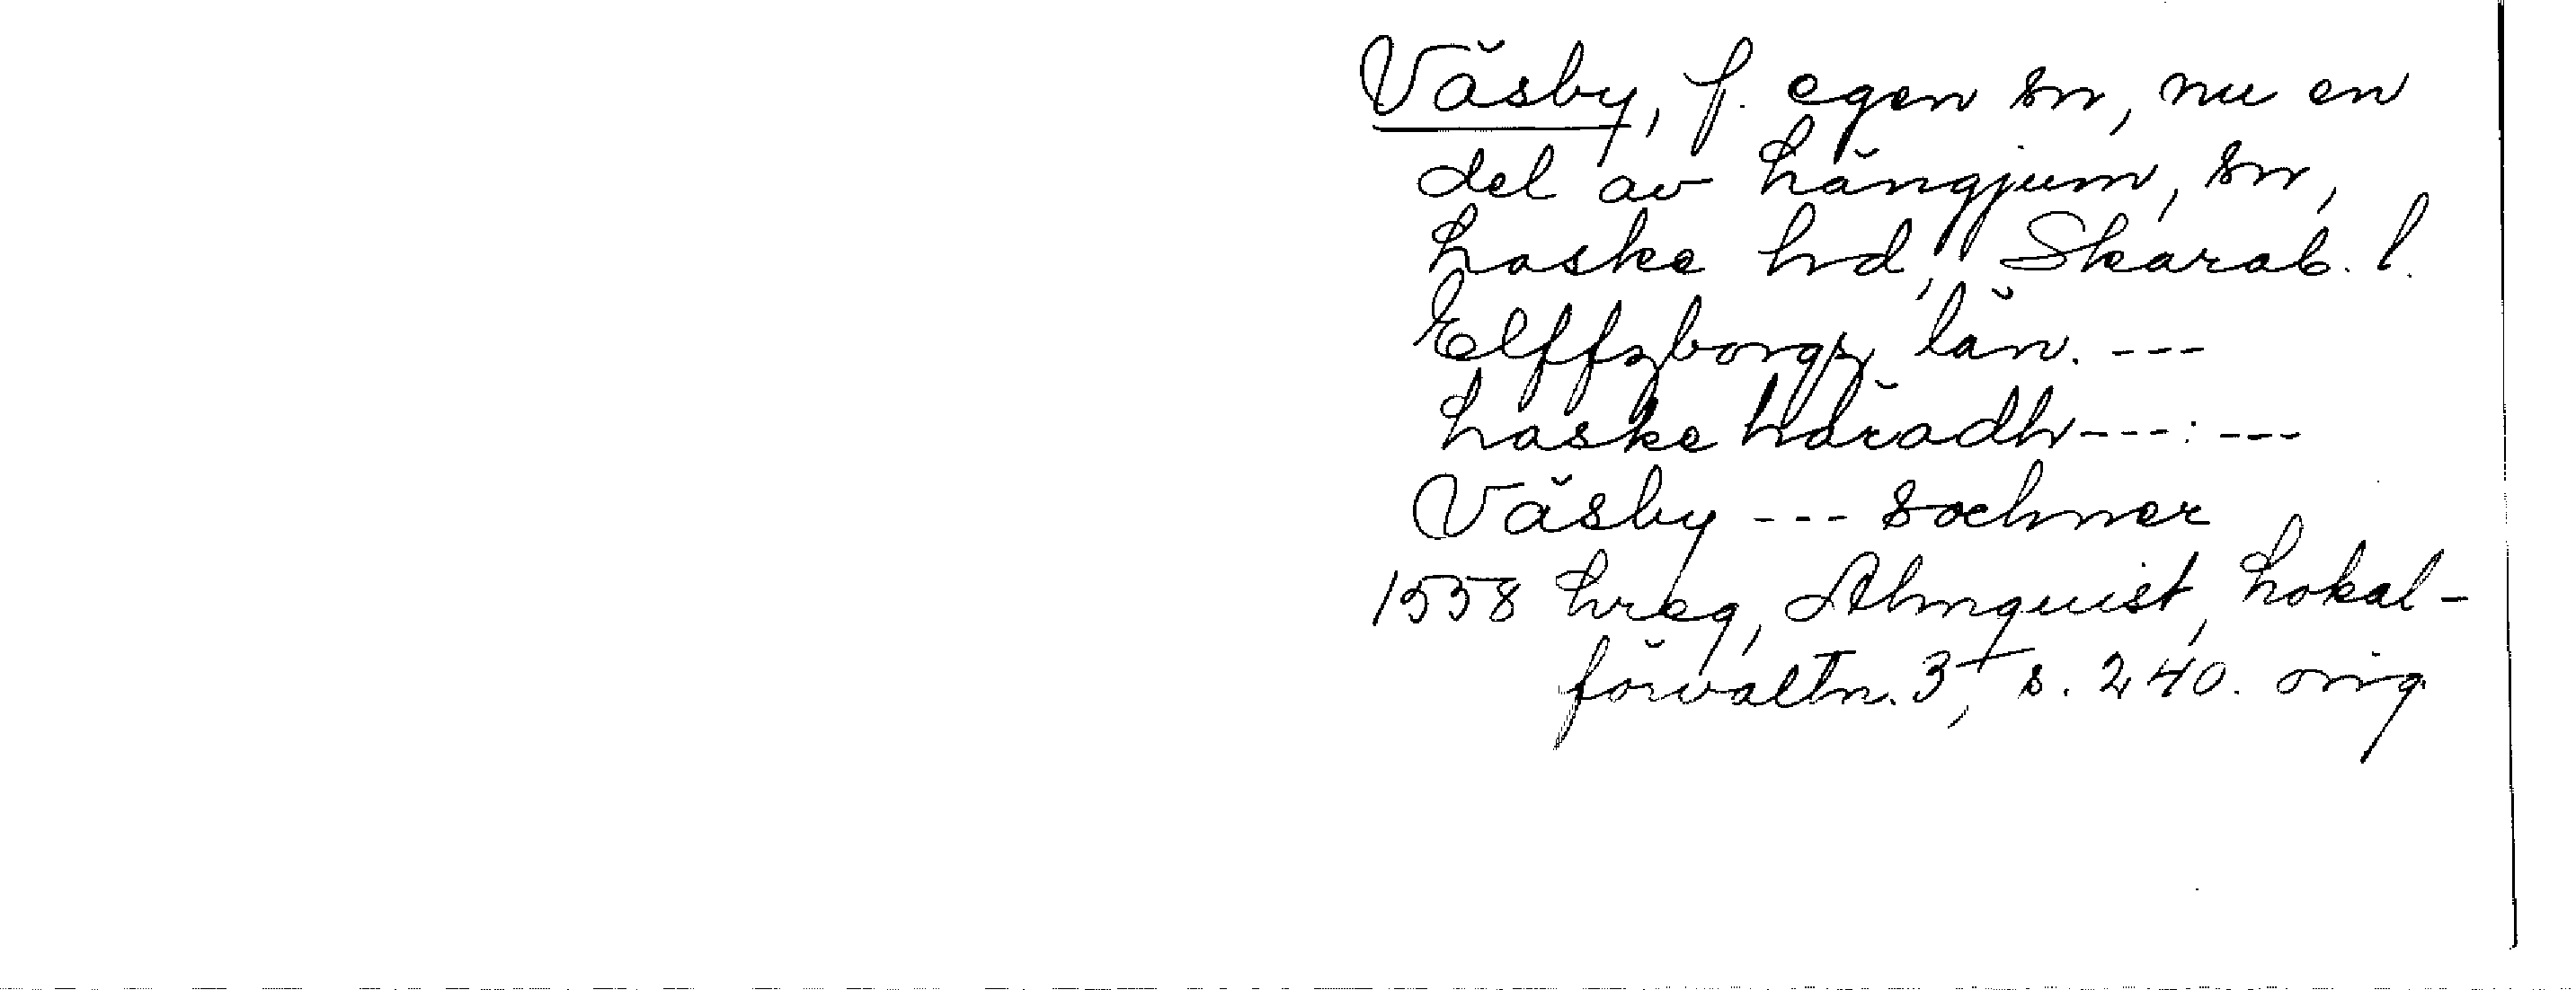 Väsby, f. egen sn, nu en
del av Längjum, sn,
Laske hd, Skarab. l.
Elffzborgz län. ---
Laske häradh---:---
Väsby --- sochner
1558 Lreg, Almquist, Lokal-
förvaltn. 3, s. 240. orig